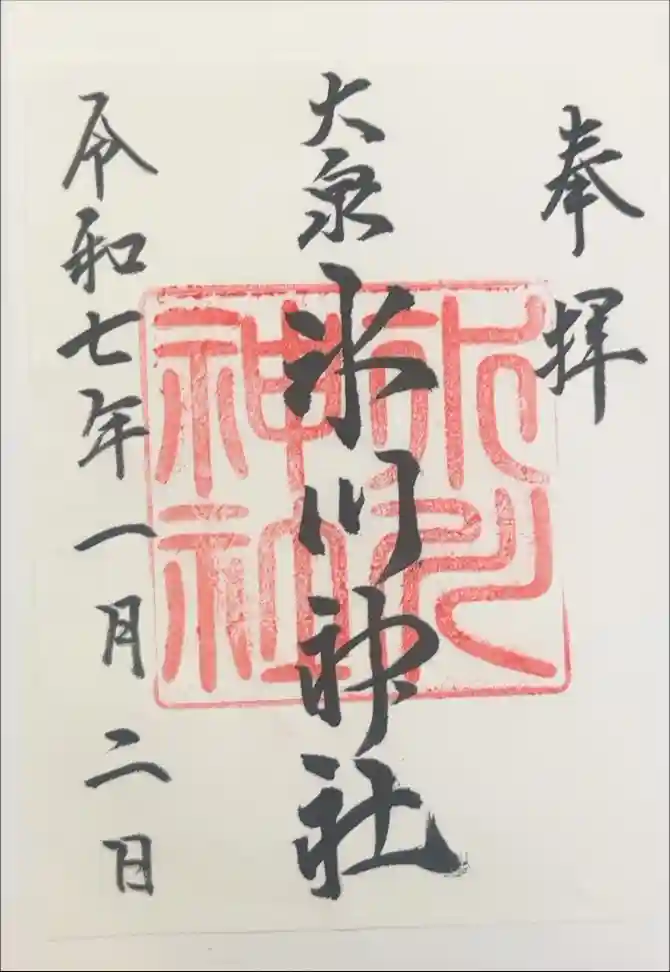 奉拝
大泉氷川神社
令和七年一月二日
氷川神社